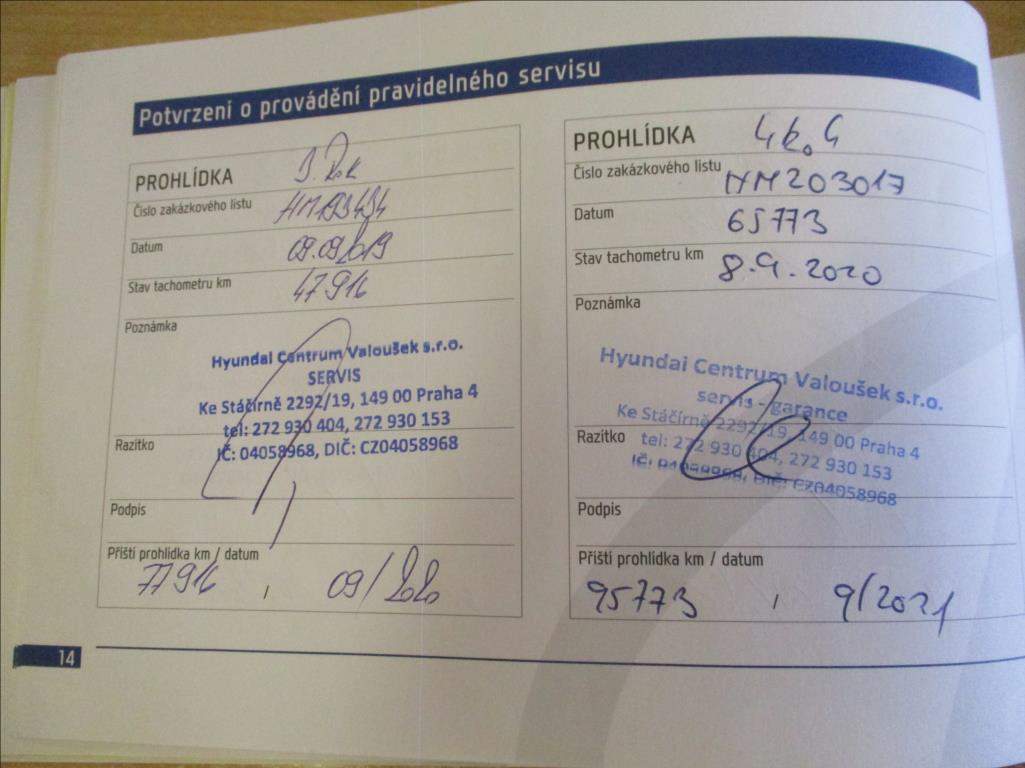 Potvrzení o provádění pravidelného servisu
PROHLÍDKA 3. Rok
Číslo zakázkového listu HM193434
Datum 09.09.2019
Stav tachometru km 47916
Poznámka
Hyundai Centrum Valoušek s.r.o.
SERVIS
Ke Stáčírně 2292/19, 149 00 Praha 4
tel: 272 930 404, 272 930 153
Razítko
IČ: 04058968, DIČ: CZ04058968
Podpis
Příští prohlídka km / datum
77916 , 09/2020
PROHLÍDKA
Číslo zakázkového listu HM203017
Datum 65773
Stav tachometru km 8.9.2020
Poznámka
Hyundai Centrum Valoušek s.r.o.
servis - garance
Ke Stáčírně 2292/19, 149 00 Praha 4
Razítko
tel: 272 930 404, 272 930 153
IČ: 04058968, DIČ: CZ04058968
Podpis
Příští prohlídka km / datum
95773 , 9/2021
14